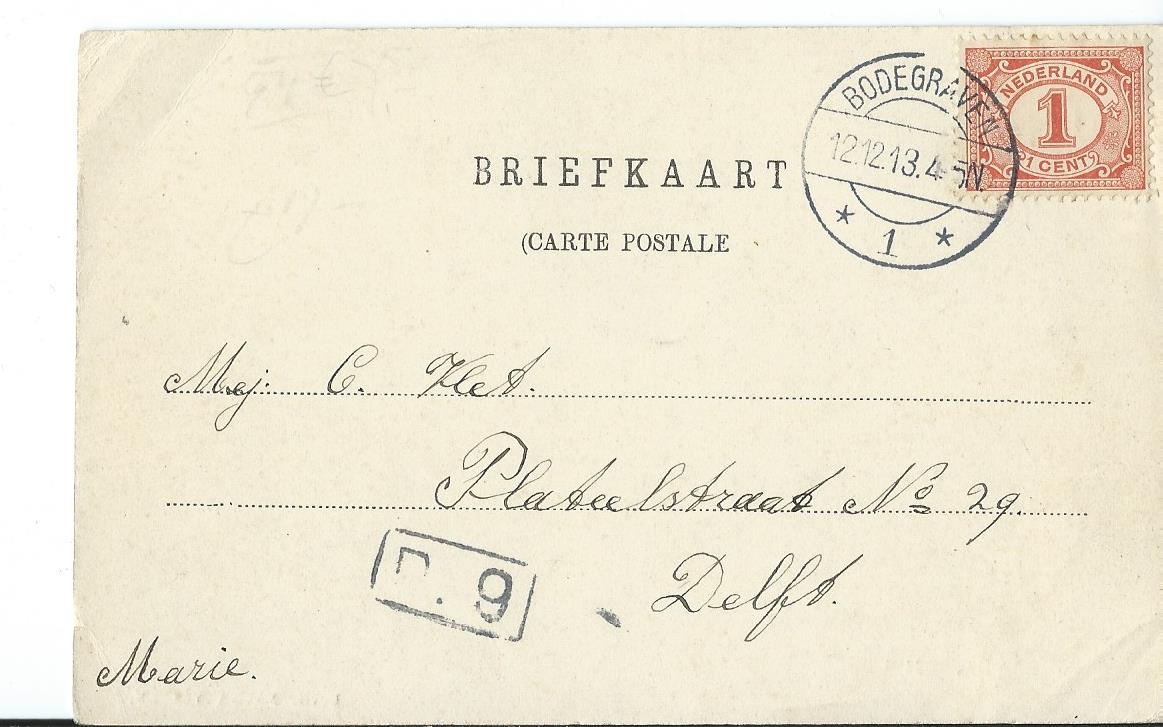 NEDERLAND
1
1 CENT
BODEGRAVEN
12.12.13.4-5N.
1
BRIEFKAART
(CARTE POSTALE
Mej: C. Vlet.
Plateelstraat No 29.
Delft.
9
Marie.